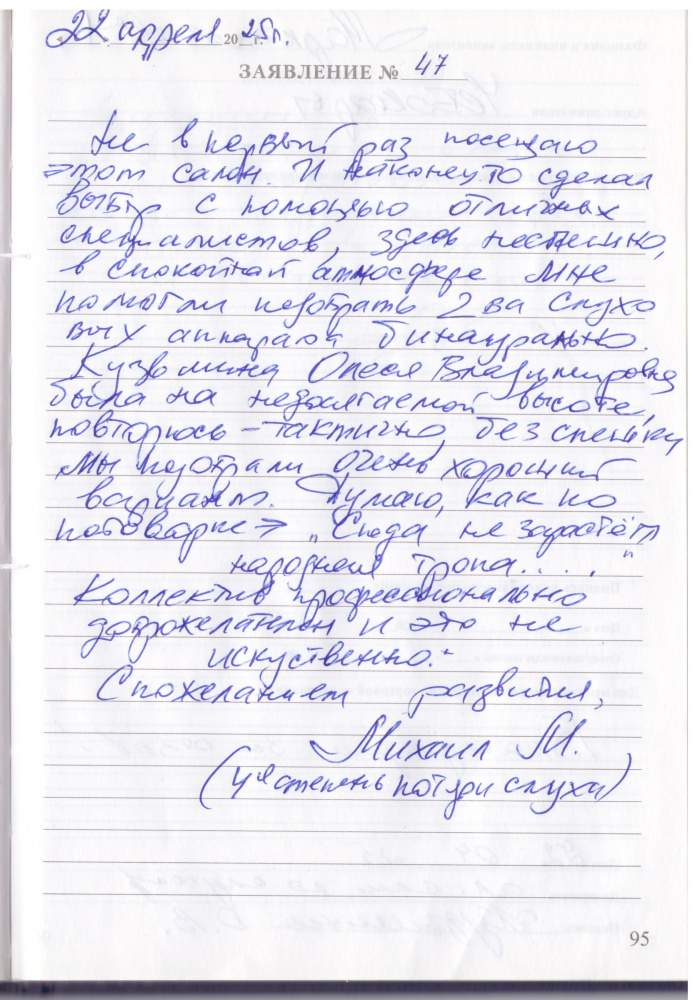 22 апреля 2025г.
ЗАЯВЛЕНИЕ № 47
Не в первый раз посещаю
этот салон. И наконец то сделал
выбор с помощью отличных
специалистов, здесь неспешно,
в спокойной атмосфере мне
помогли подобрать 2 ва слухо
вых аппарата бинаурально.
Кузьмина Олеся Владимировна
была на недосягаемой высоте,
повторюсь – тактично, без спешки
мы подобрали очень хороший
вариант. Думаю, как по
поговорке → „Сюда не зарастёт
народная тропа....."
Коллектив профессионально
доброжелателен и это не
искуственно.
С пожеланием развития,
Михаил М.
(4я степень потери слуха)
95